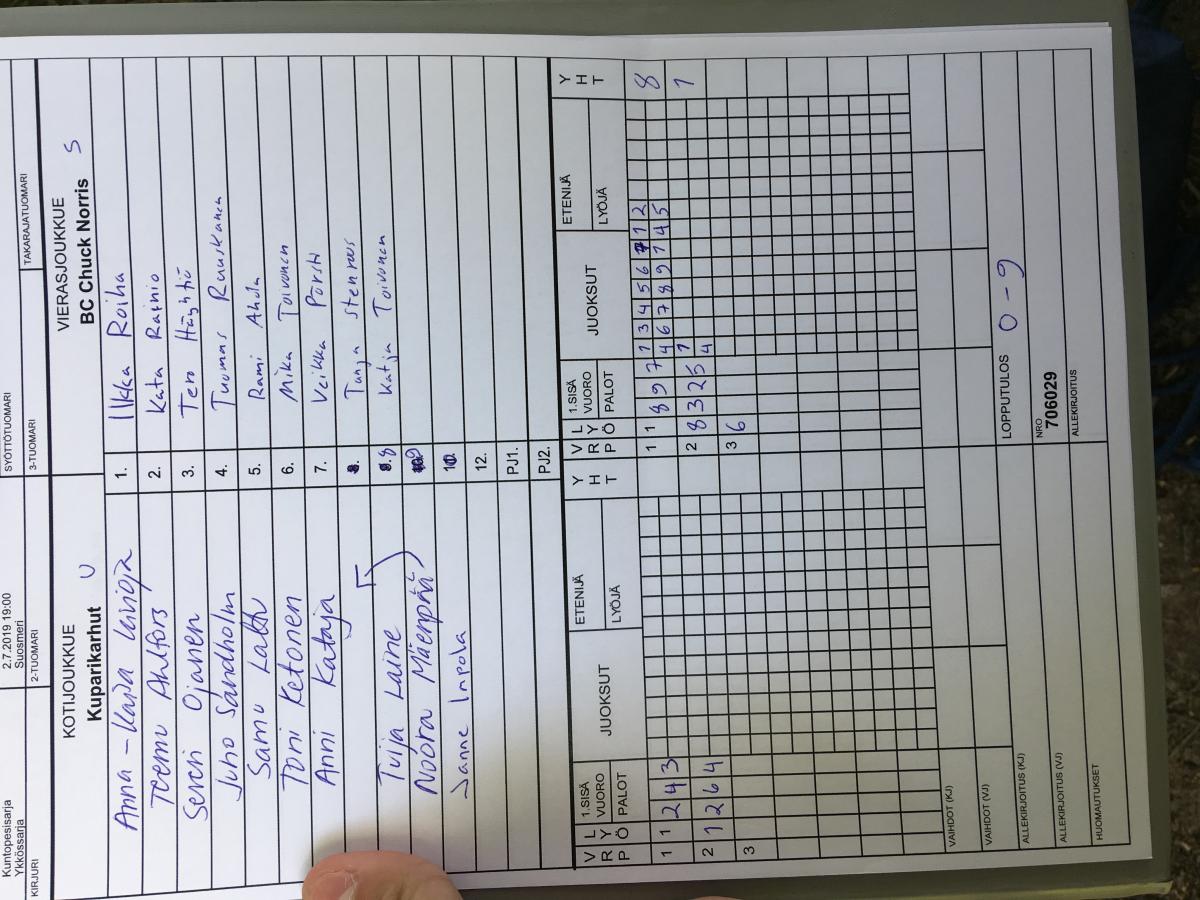 Kuntopesisarja 2.7.2019 19:00
Ykkössarja Suosmeri
SYÖTTÖTUOMARI
KIRJURI 2-TUOMARI 3-TUOMARI TAKARAJATUOMARI
KOTIJOUKKUE VIERASJOUKKUE
Kuparikarhut U BC Chuck Norris S
Anna-Kaija 1. Ilkka Roiha
Teemu Ahlfors 2. Kata Rainio
Severi Ojanen 3. Tero Häyhtiö
Juho Sandholm 4. Tuomas Ruuskanen
Samu 5. Rami Ahola
Toni Ketonen 6. Mika Toivonen
Anni Kataja 7. Veikka Porsti
8. Tanja Stenroos
Tuija Laine 8 Katja Toivonen
Noora Mäenpää 9
Janne Impola
12.
PJ1.
PJ2.
V R P L Y Ö 1.SISÄ VUORO PALOT JUOKSUT ETENIJÄ LYÖJÄ Y H T V R P L Y Ö 1.SISÄ VUORO PALOT JUOKSUT ETENIJÄ LYÖJÄ Y H T
1 1 2 4 3 1 1 8 9 7 1 3 4 5 6 7 1 2 8
4 6 7 8 9 1 4 5
2 1 2 6 4 2 8 3 2 5 1 1
4
3 3 6
VAIHDOT (KJ)
VAIHDOT (VJ)
LOPPUTULOS 0-9
ALLEKIRJOITUS (KJ) NRO
706029
ALLEKIRJOITUS (VJ) ALLEKIRJOITUS
HUOMAUTUKSET